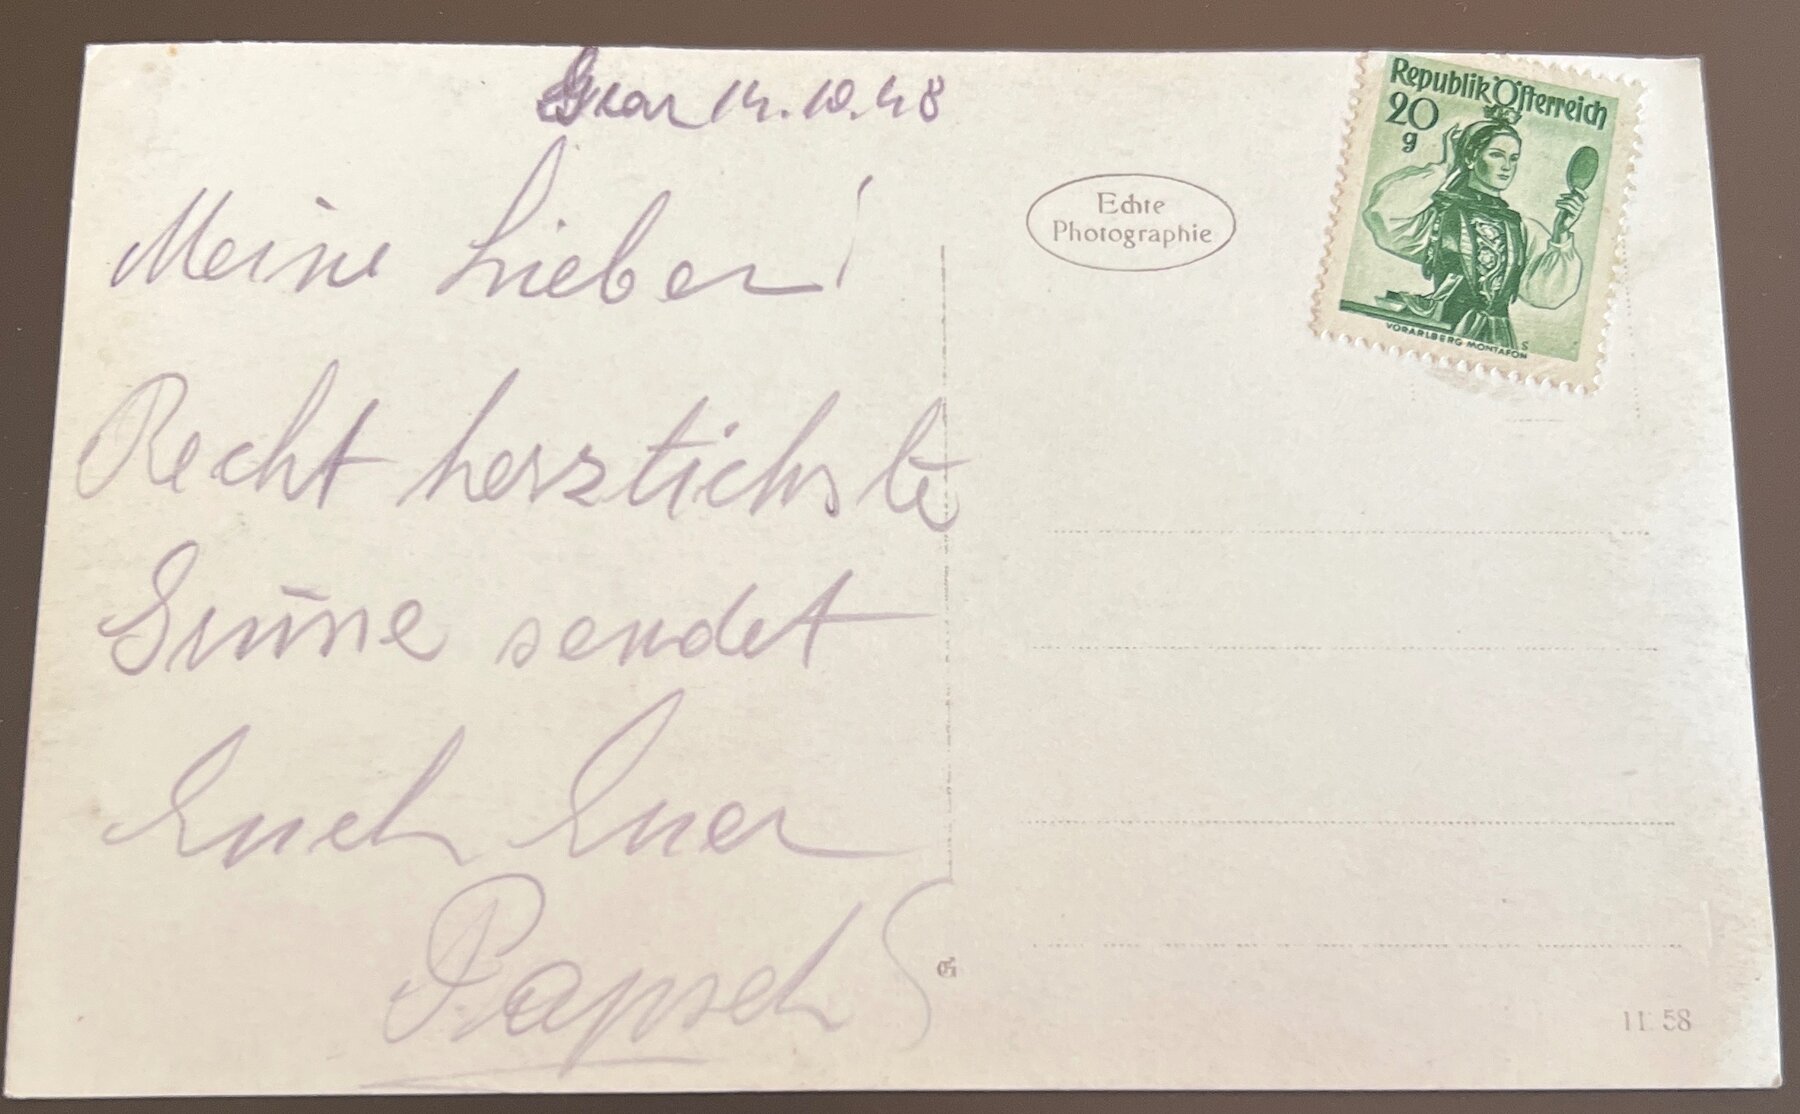 Graz 14.10.48
Meine Lieben!
Recht herzlichste
Grüsse sendet
Euch Euer
Echte
Photographie
Republik Österreich
20
g
VORARLBERG MONTAFON
58